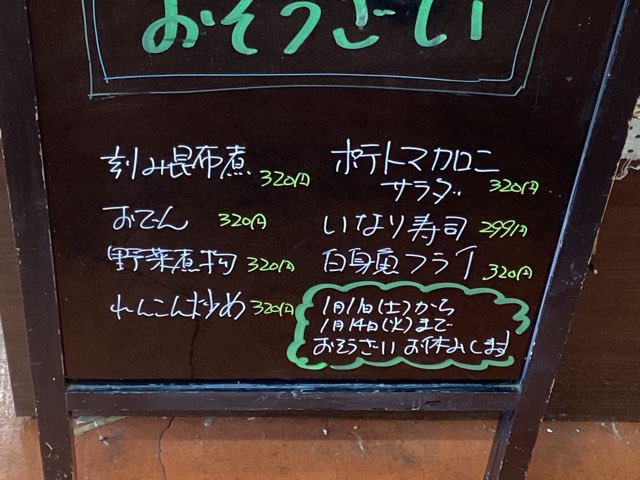 おそうざい
刻み昆布煮 320円
おでん 320円
野菜煮物 320円
れんこん炒め 320円
ポテトマカロニ
サラダ 320円
いなり寿司 299円
白身魚フライ 320円
1月11日(土)から
1月14日(火)まで
おそうざいお休みします